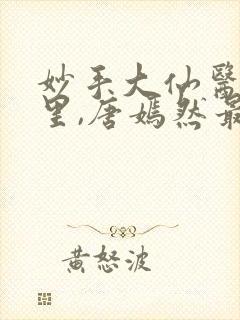 妙手大仙醫
里,唐嫣然最
黃怒波